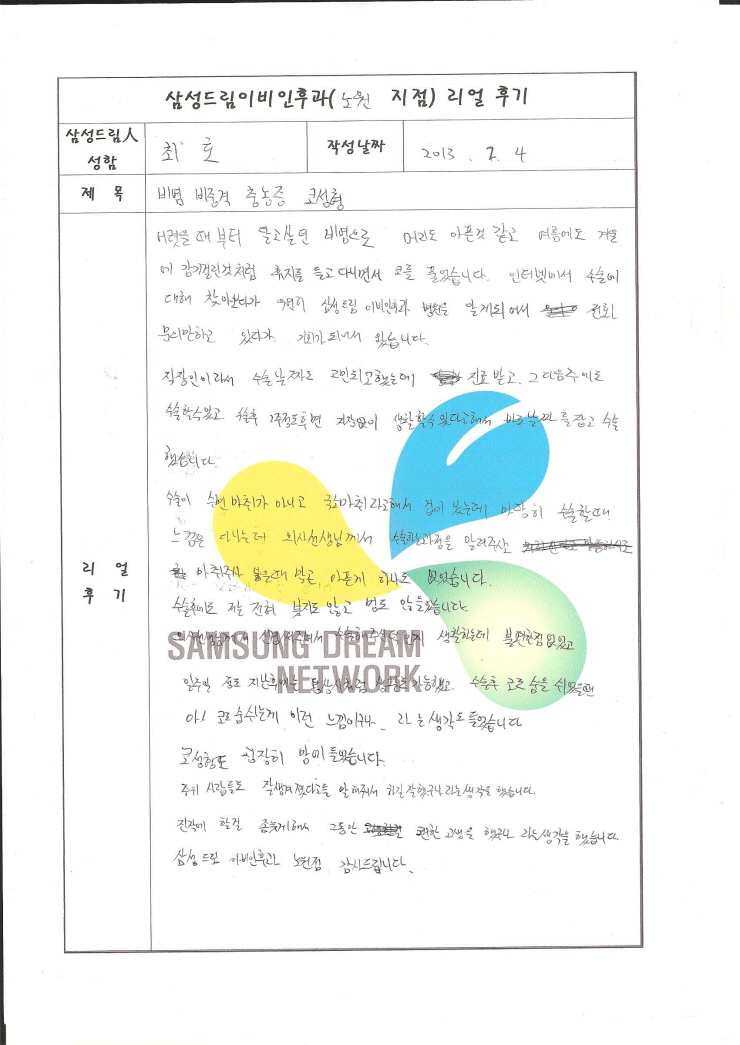 삼성드림이비인후과( 노원 지점) 리얼 후기
삼성드림人 성함
최 호
작성날짜
2013. 7. 4
제 목
비염 비중격 축농증 코성형
리 얼 후 기
어렸을때 부터 달고살던 비염으로 머리도 아픈것 같고 여름에도 겨울
에 감기걸린것처럼 휴지를 들고 다니면서 코를 풀었습니다. 인터넷에서 수술에
대해 찾아보다가 우연히 삼성드림 이비인후과 병원을 알게되어서 전화
문의만하고 있다가 기회가 되어서 왔습니다.
직장인이라서 수술날짜도 고민되고했는데 진료받고, 그다음주에도
수술할수있고 수술후 1주정도후면 지장없이 생활할수있다고해서 바로날짜를잡고 수술
했습니다.
수술이 수면마취가 아니고 국소마취라고해서 겁이 났는데 수술할때
느낌은 나는데 의사선생님께서 수술하는과정을 알려주시고
마취주사 놓을때 빼곤, 아픈게 하나도 없었습니다.
수술후에도 저는 전혀 붓지도 않고 멍도 않들었습니다
생활하는데 불편한점없었고
SAMSUNG DREAM
NETWORK
일주일 정도 지난후에는 일상생활 가능했고 수술후 코로 숨을 쉬었을땐
아! 코로숨쉬는게 이런 느낌이구나. 라는 생각도들었습니다
코성형도 굉장히 맘에들었습니다.
주위 사람들도 잘생겨졌다고들 말해줘서 하길 잘했구나라는생각을 했습니다.
진작에 할걸 좀늦게해서 그동안 괜한 고생을 했구나 라는생각을 했습니다.
삼성드림 이비인후과 노원점 감사드립니다.